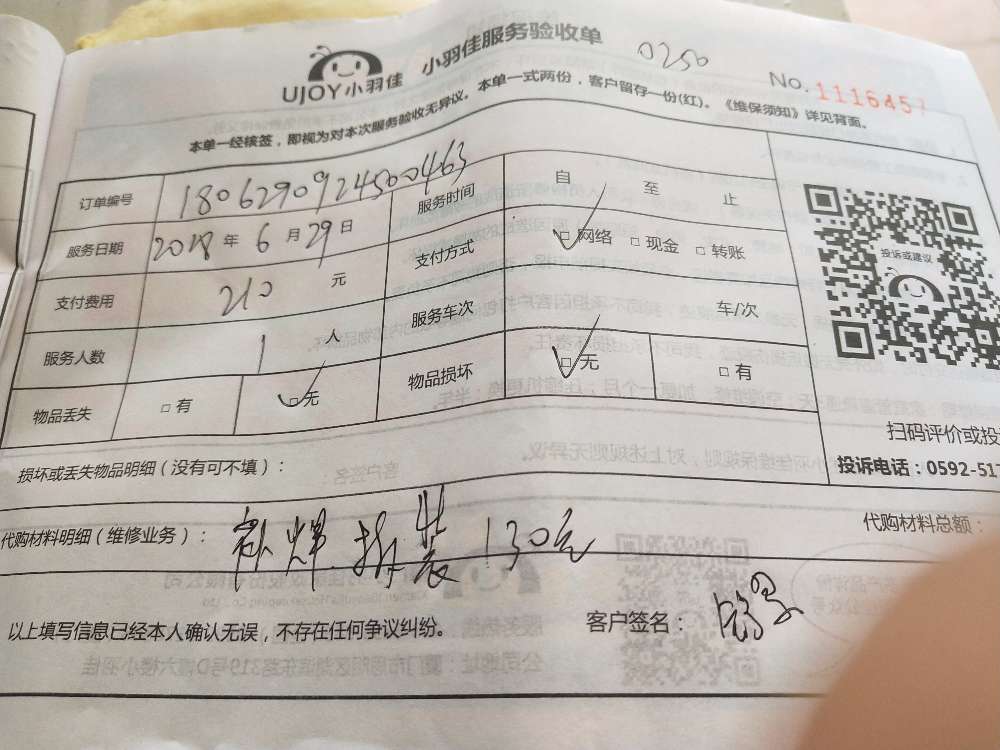 UJOY小羽佳 小羽佳服务验收单 0250
No. 1116457
本单一经核签，即视为对本次服务验收无异议。本单一式两份，客户留存一份(红)。《维保须知》详见背面。
订单编号 1806290924500463 服务时间 自 至 止
服务日期 2018 年 6 月 29 日 支付方式 网络 □ 现金 □ 转账
支付费用 210 元 服务车次 车/次
服务人数 1 人 物品损坏 □ 无 □ 有
物品丢失 □ 有 □ 无
投诉或建议
扫码评价或投
投诉电话：0592-517
损坏或丢失物品明细（没有可不填）：
代购材料明细（维修业务）： 补焊 拆装 130元 代购材料总额：
以上填写信息已经本人确认无误，不存在任何争议纠纷。 客户签名：